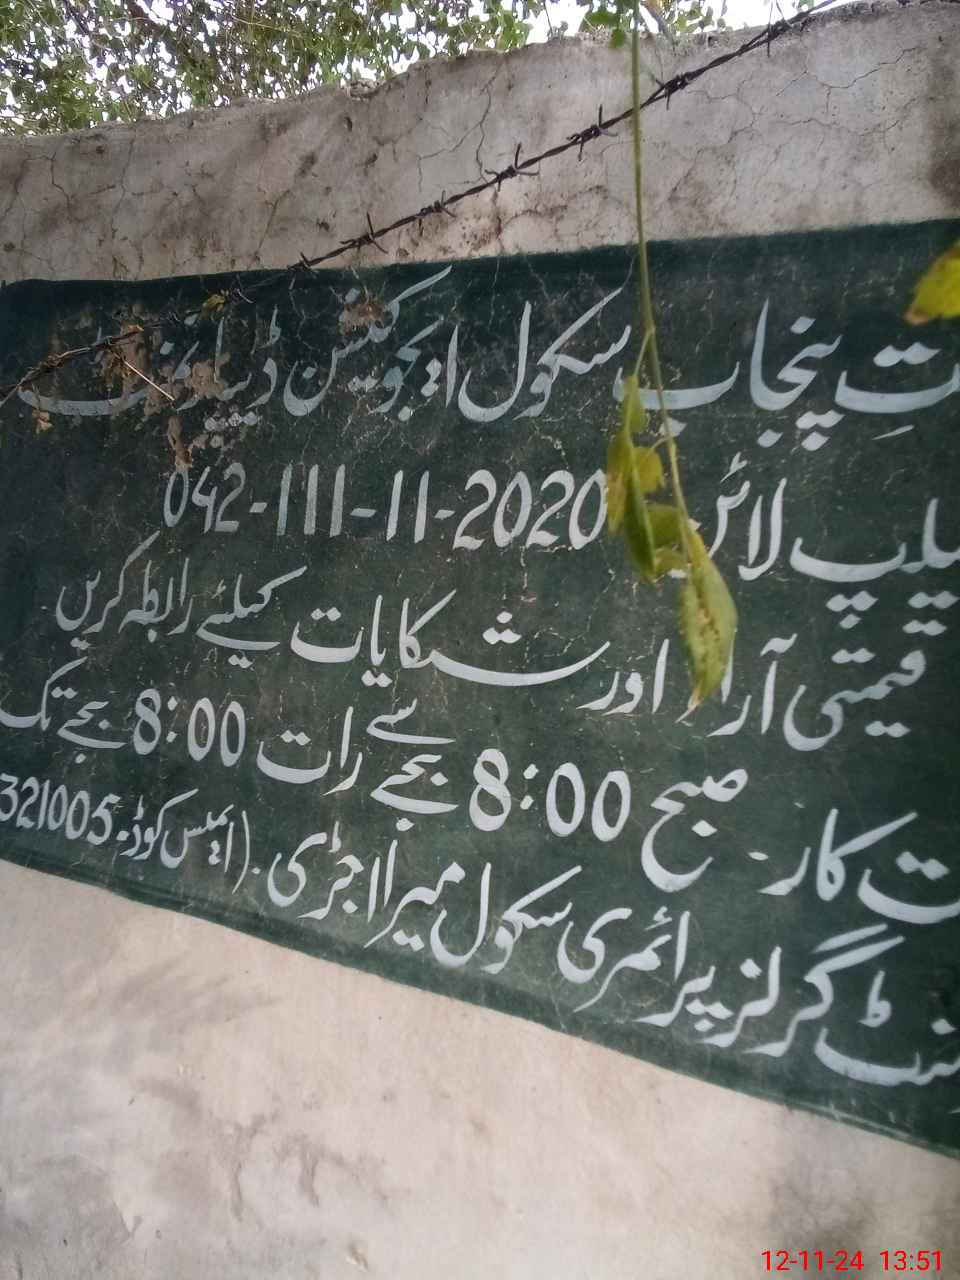 تِ پنجاب سکول ایجوکیشن ڈیپارٹمنٹ
یلپ لائن 042-111-11-2020
قیمتی آراء اور شکایات کیلئے رابطہ کریں
ت کار۔ صبح 8:00 بجے سے رات 8:00 بجے تک
نٹ گرلز پرائمری سکول میرا جڑی۔ (ایمیس کوڈ۔ 321005
12-11-24 13:51